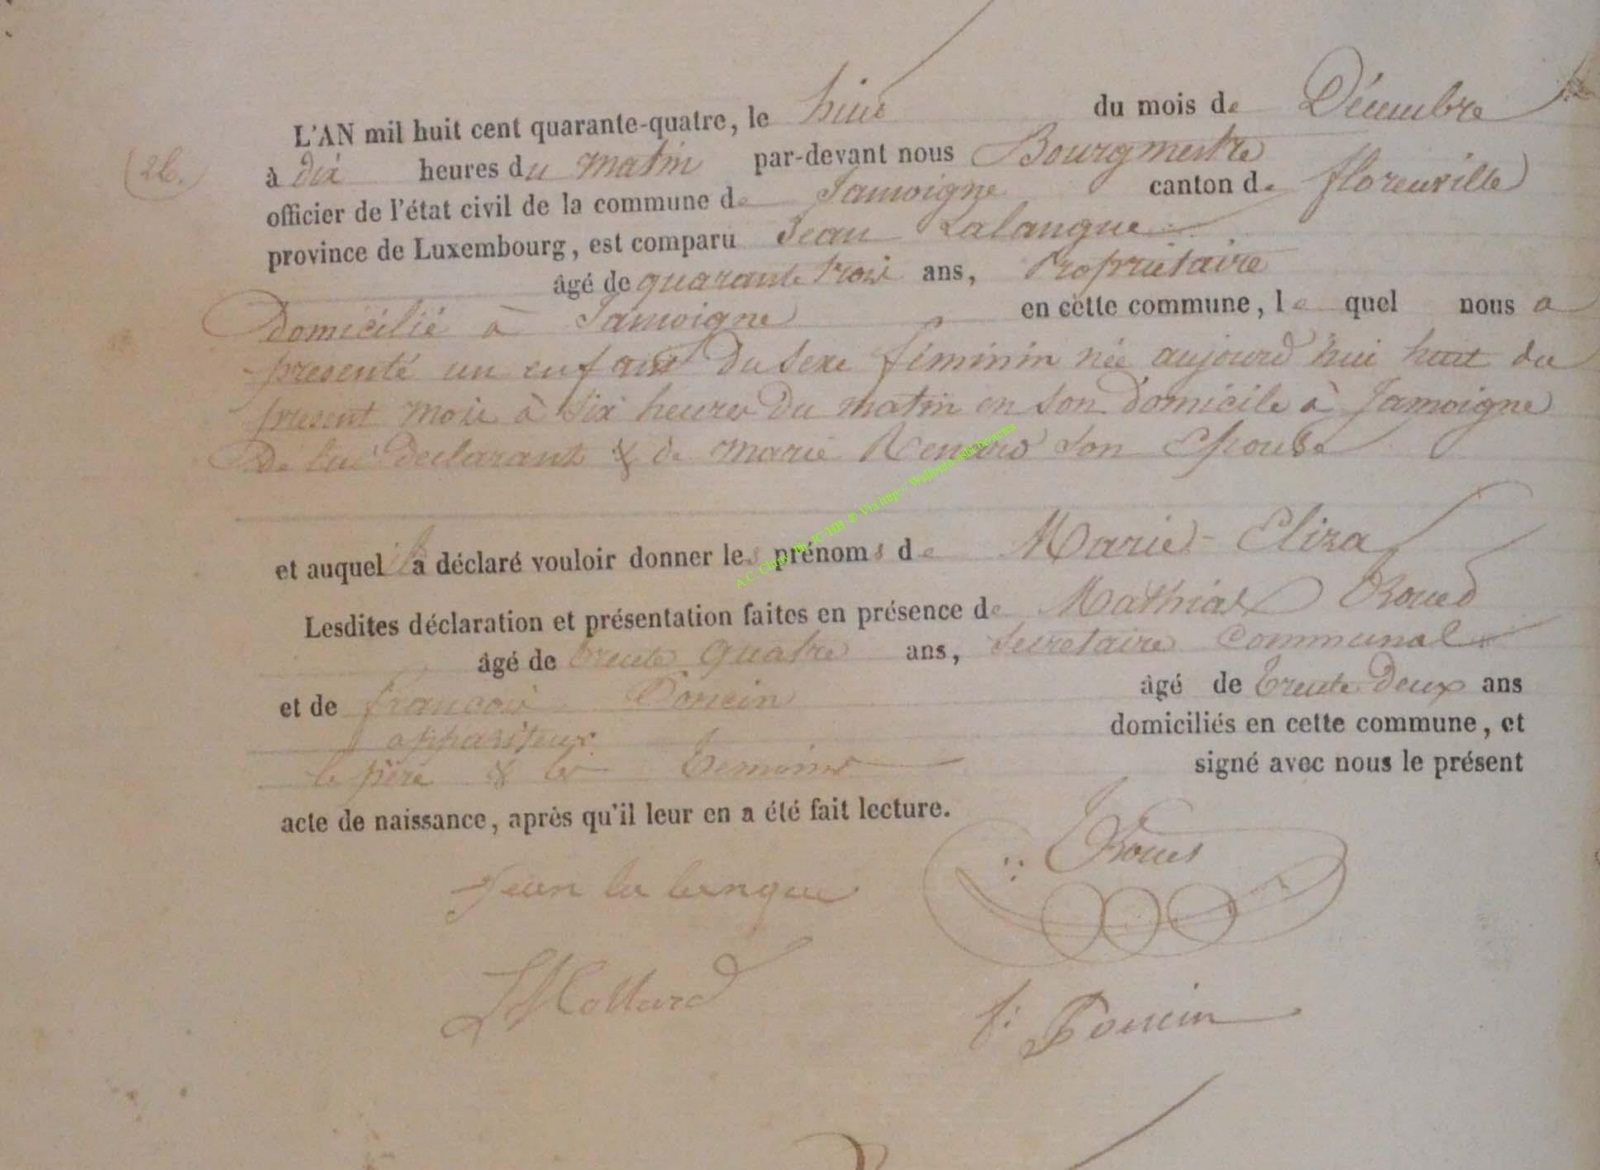 L'AN mil huit cent quarante-quatre, le huit du mois de Décembre
(26.)
à dix heures du matin par-devant nous Bourgmestre
officier de l'état civil de la commune de Jamoigne canton de florenville
province de Luxembourg, est comparu Jean Lalangue
âgé de quarante trois ans, Propriétaire
domicilié à Jamoigne en cette commune, le quel nous a
présenté un enfant du sexe féminin née aujourd'hui huit du
présent mois à six heures du matin en son domicile à Jamoigne
de lui déclarant & de marie Renard son Epouse
et auquel il a déclaré vouloir donner les prénoms de Marie-Eliza
Lesdites déclaration et présentation faites en présence de Mathias
âgé de trente quatre ans, Secrétaire Communal
et de françois Poncin âgé de trente deux ans
appariteur domiciliés en cette commune, et
le père & les témoins signé avec nous le présent
acte de naissance, après qu'il leur en a été fait lecture.
Jean la langue
Collard
f: Poncin